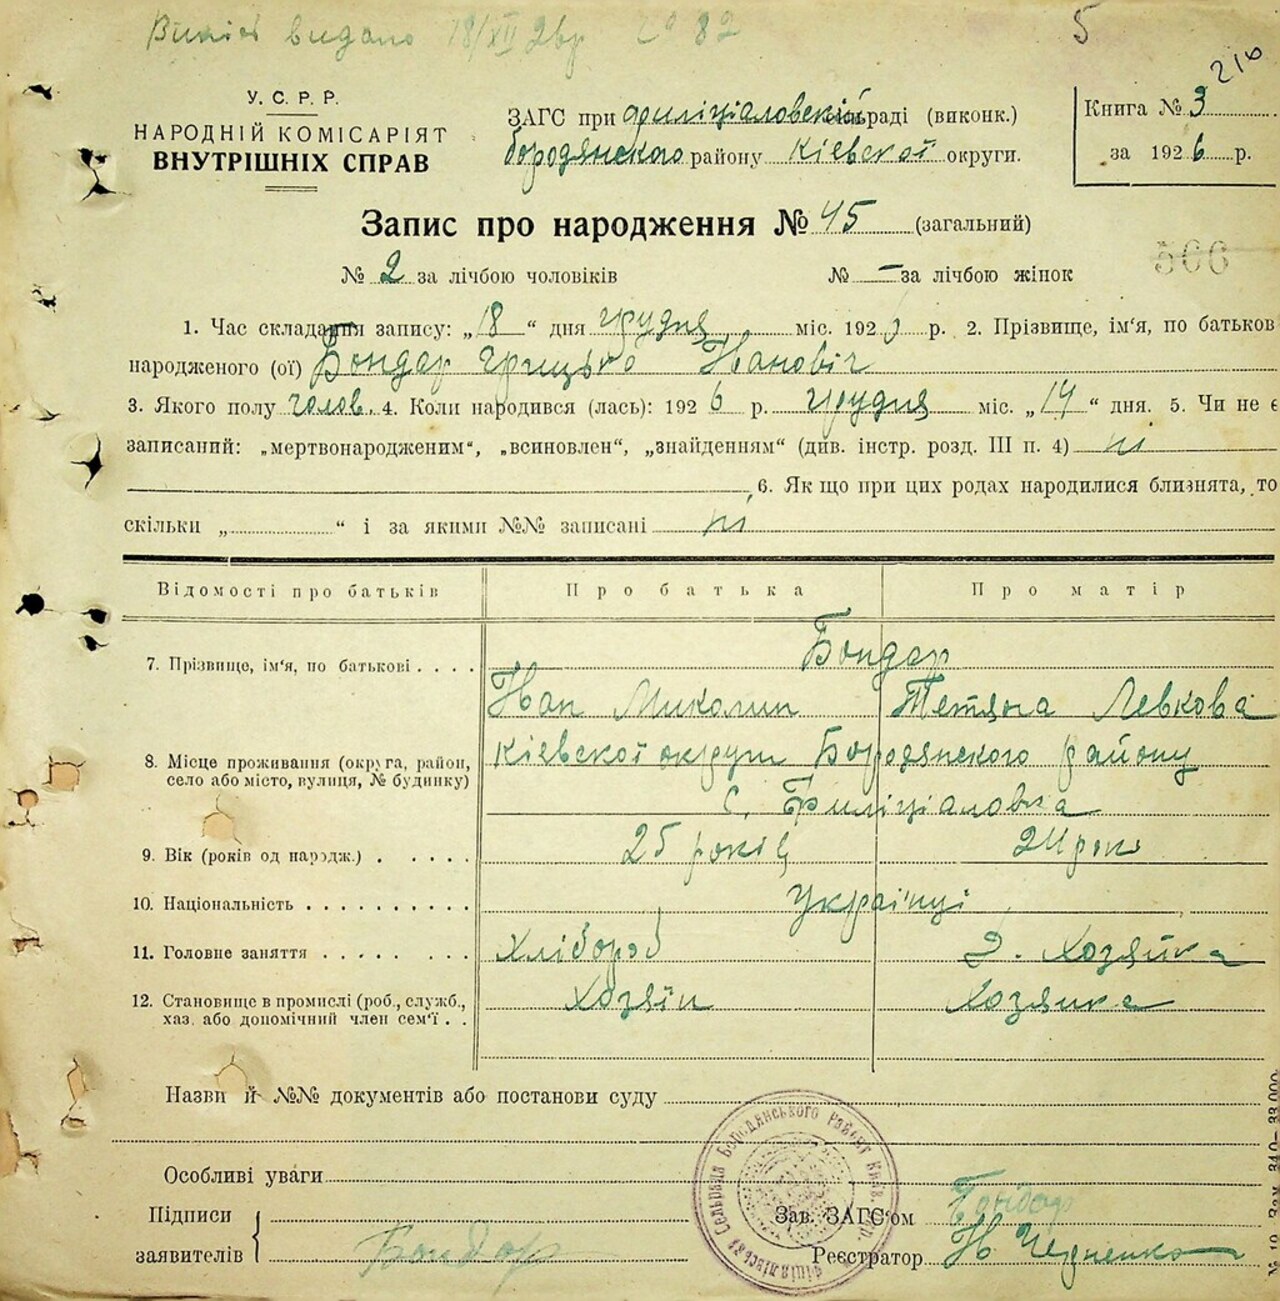 Витяг видано 18/XII 26р № 82
5
216
У. С. Р. Р.
НАРОДНІЙ КОМІСАРІЯТ
ВНУТРІШНІХ СПРАВ
ЗАГС при Филіціаловскій сільраді (виконк.)
Бородянского району Кіевскої округи.
Книга № 3
за 1926 р.
Запис про народження № 45 (загальний)
№ 2 за лічбою чоловіків № — за лічбою жінок
566
1. Час складання запису: „18“ дня грудня міс. 1926 р. 2. Прізвище, ім'я, по батьков
народженого (ої) Бондар Грицько Іванович
3. Якого полу голов. 4. Коли народився (лась): 1926 р. грудня міс. „14“ дня. 5. Чи не є
записаний: „мертвонародженим“, „всиновлен“, „знайденням“ (див. інстр. розд. III п. 4) ні
6. Як що при цих родах народилися близнята, то
скільки „ “ і за якими №№ записані ні
Відомості про батьків Про батька Про матір
7. Прізвище, ім'я, по батькові . . . . Бондар
Іван Миколин Тетяна Левкова
8. Місце проживання (округа, район,
село або місто, вулиця, № будинку)
Кіевскої округи Бородянского району
с. Филіціаловка
9. Вік (років од народж.) . . . . . 25 років 24 роки
10. Національність . . . . . . . . . . Українці
11. Головне заняття . . . . . . . . Хлібороб Д. Хозяйка
12. Становище в промислі (роб., служб.,
хаз. або допомічний член сем'ї . .
Хозяїн Хозяйка
Назви й №№ документів або постанови суду
Особливі уваги
Підписи
заявителів
Бондар
Зав. ЗАГС'ом Бондар
Реєстратор
Сельрада Бородянського району Київ.